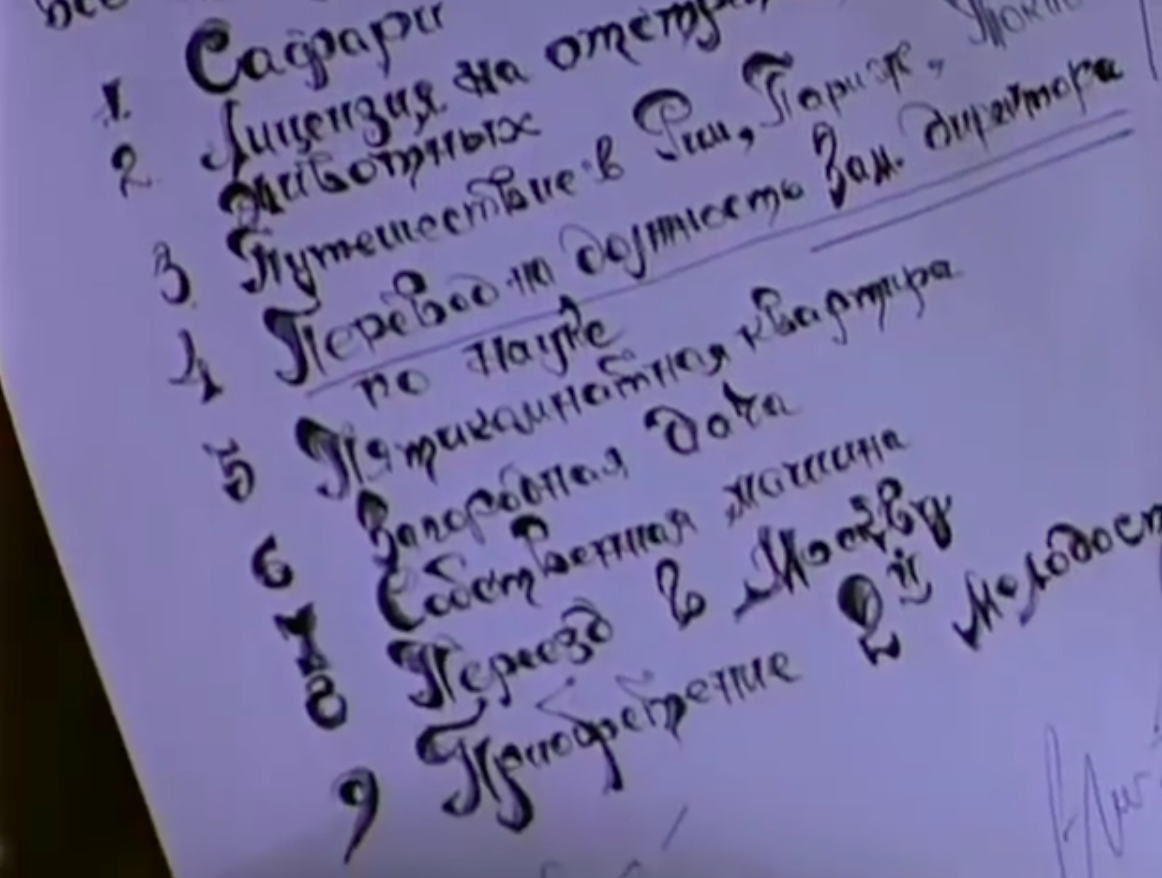 1. Сафари
2. Лицензия на отстр
животных
3. Путешествие в Рим, Париж, Токи
4 Перевод на должность Зам. директора
по науке
5 Пятикомнатная квартира
6 Загородная дача
7 Собственная машина
8 Переезд в Москву
9 Приобретение 2й молодост